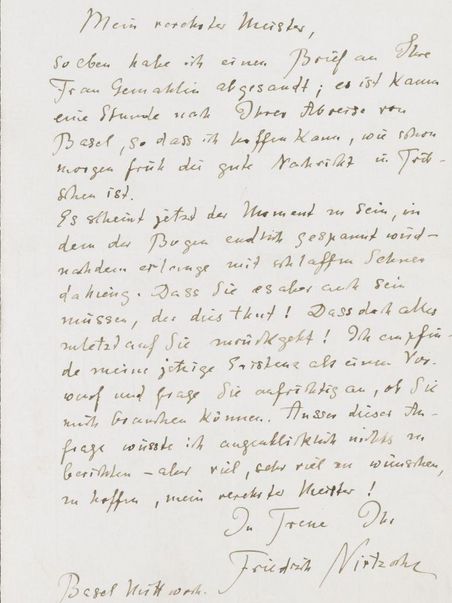 Mein verehrter Meister,
soeben habe ich einen Brief an Ihre
Frau Gemahlin abgesandt; es ist kaum
eine Stunde nach Ihrer Abreise von
Basel, so dass ich hoffen kann, wie schon
morgen früh die gute Nachricht in Trib-
schen ist.
Es scheint jetzt der Moment zu sein, in
dem der Bogen endlich gespannt wird –
nachdem er lange mit schlaffen Sehnen
dahieng. Dass Sie es aber auch sein
müssen, der dies thut! Dass doch alles
zuletzt auf Sie zurückgeht! Ich empfin-
de meine jetzige Existenz als einen Vor-
wurf und frage Sie aufrichtig an, ob Sie
mich brauchen können. Ausser dieser An-
frage wüsste ich augenblicklich nichts zu
berichten – aber viel, sehr viel zu wünschen,
zu hoffen, mein verehrter Meister!
In Treue Ihr
Friedrich Nietzsche
Basel Mittwoch.